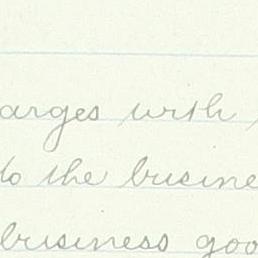 arges with
to the busine
business goo